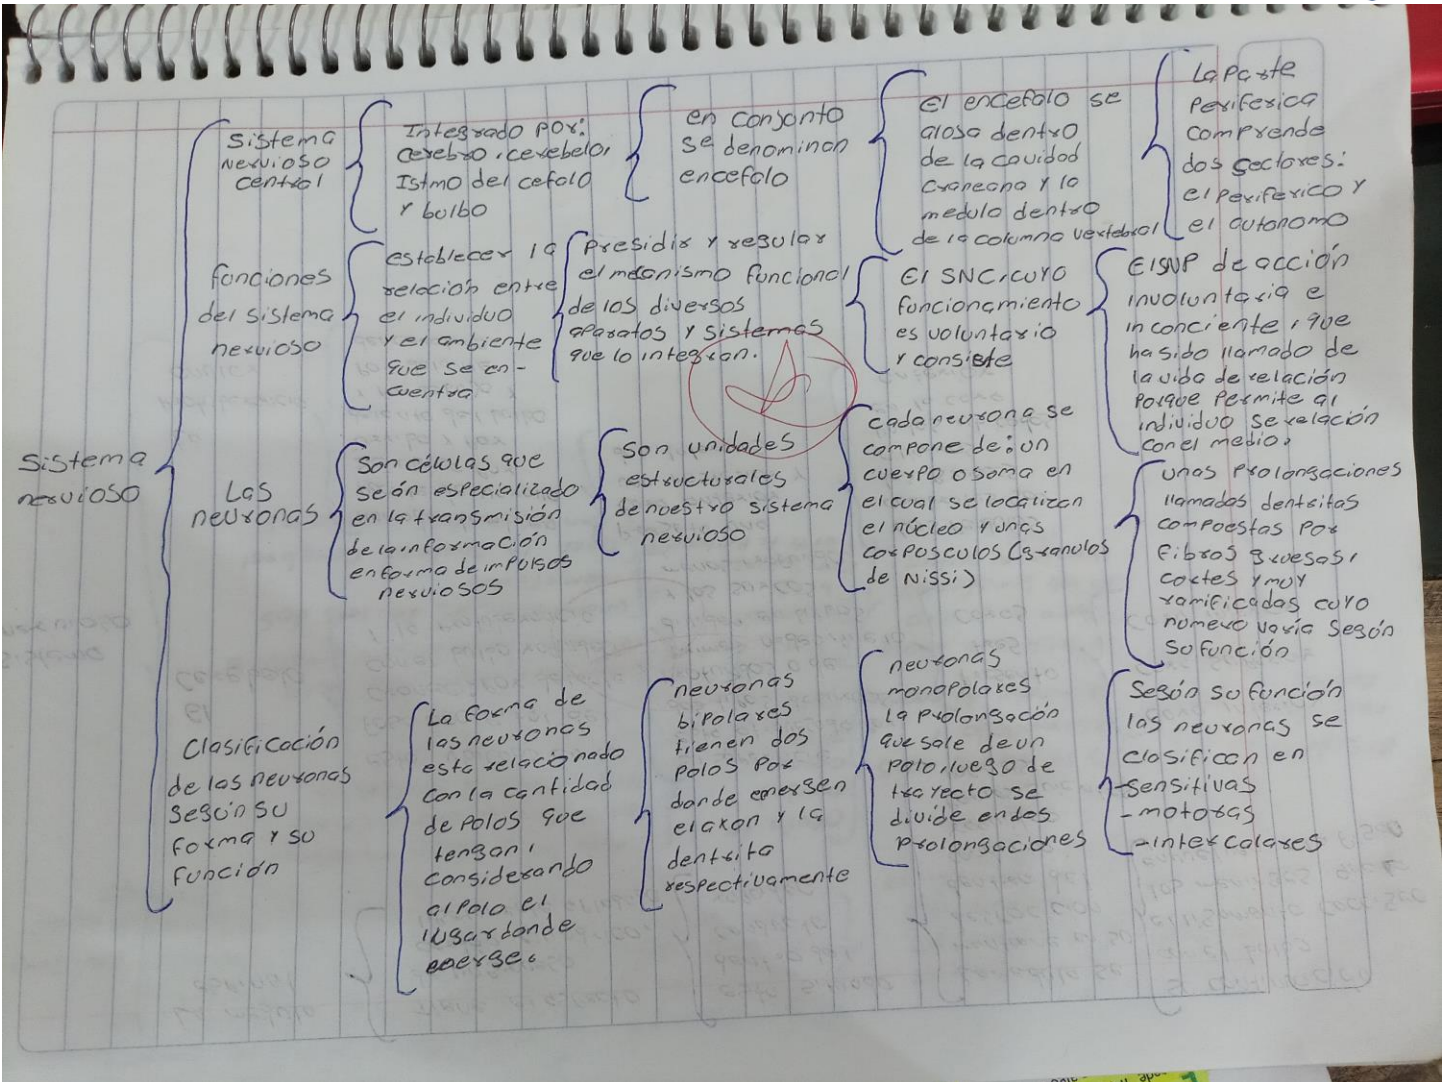 Sistema
nervioso
Sistema
nervioso
central
Integrado por:
cerebro, cerebelo,
Istmo del cefalo
y bulbo
en conjunto
se denominan
encefalo
El encefalo se
alosa dentro
de la cavidad
craneana y la
medula dentro
de la columna vertebral
La parte
Periferica
comprende
dos sectores:
el periferico y
el autonomo
funciones
del sistema
nervioso
establecer la
relación entre
el individuo
y el ambiente
que se en-
cuentra
Presidir y regular
el mecanismo funcional
de los diversos
aparatos y sistemas
que lo integran.
El SNC, cuyo
funcionamiento
es voluntario
y consiste
El SNP de acción
involuntaria e
inconciente, que
ha sido llamado de
la vida de relación
porque permite al
individuo se relación
con el medio.
Las
neuronas
Son células que
se án especializado
en la transmisión
de la información
en forma de impulsos
nerviosos
Son unidades
estructurales
de nuestro sistema
nervioso
cada neurona se
compone de: un
cuerpo o soma en
el cual se localizan
el núcleo y unas
corposculos (granulos
de Nissi)
unas prolongaciones
llamadas dentritas
compoestas por
fibras gruesas,
cortes y muy
ramificadas cuyo
numero varía según
su función
Clasificación
de las neuronas
según su
forma y su
función
La forma de
las neuronas
esta relacionado
con la cantidad
de polos que
tengan,
considerando
al polo el
lugar donde
emerge.
neuronas
bipolares
tienen dos
polos por
donde emergen
el axon y la
dentrita
respectivamente
neuronas
monopolares
la prolongación
que sale de un
polo, luego de
trayecto se
divide en dos
prolongaciones
Según su función
las neuronas se
clasifican en
-sensitivas
-motoras
-intercalares